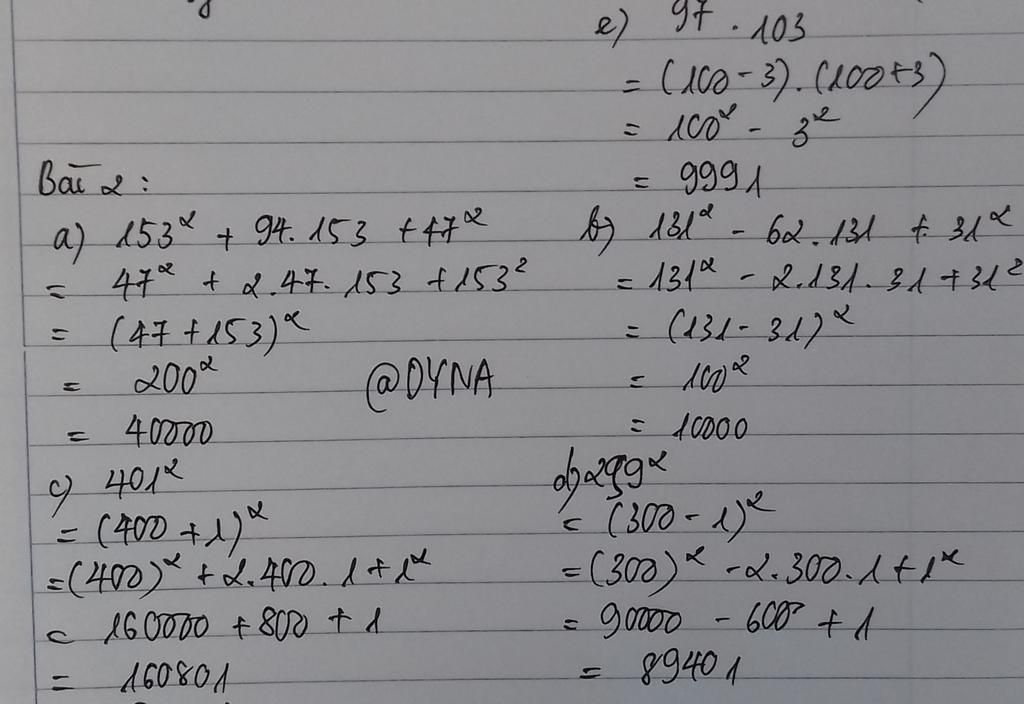 e) 97 . 103
= (100 - 3) . (100 + 3)
= 100² - 3²
= 9991
Bài 2 :
a) 153² + 94 . 153 + 47²
= 47² + 2 . 47 . 153 + 153²
= (47 + 153)²
= 200²
= 40000
@DYNA
b) 131² - 62 . 131 + 31²
= 131² - 2 . 131 . 31 + 31²
= (131 - 31)²
= 100²
= 10000
c) 401²
= (400 + 1)²
= (400)² + 2 . 400 . 1 + 1²
= 160000 + 800 + 1
= 160801
d) 299²
= (300 - 1)²
= (300)² - 2 . 300 . 1 + 1²
= 90000 - 600 + 1
= 89401